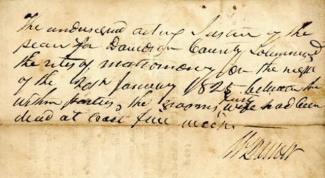 The undersigned acting Justice of the
peace for Davidson County Solemnized
the rites of matrimony on the night
of the 20th January 1825 between the
within parties, the grooms first wife had been
dead at least five weeks